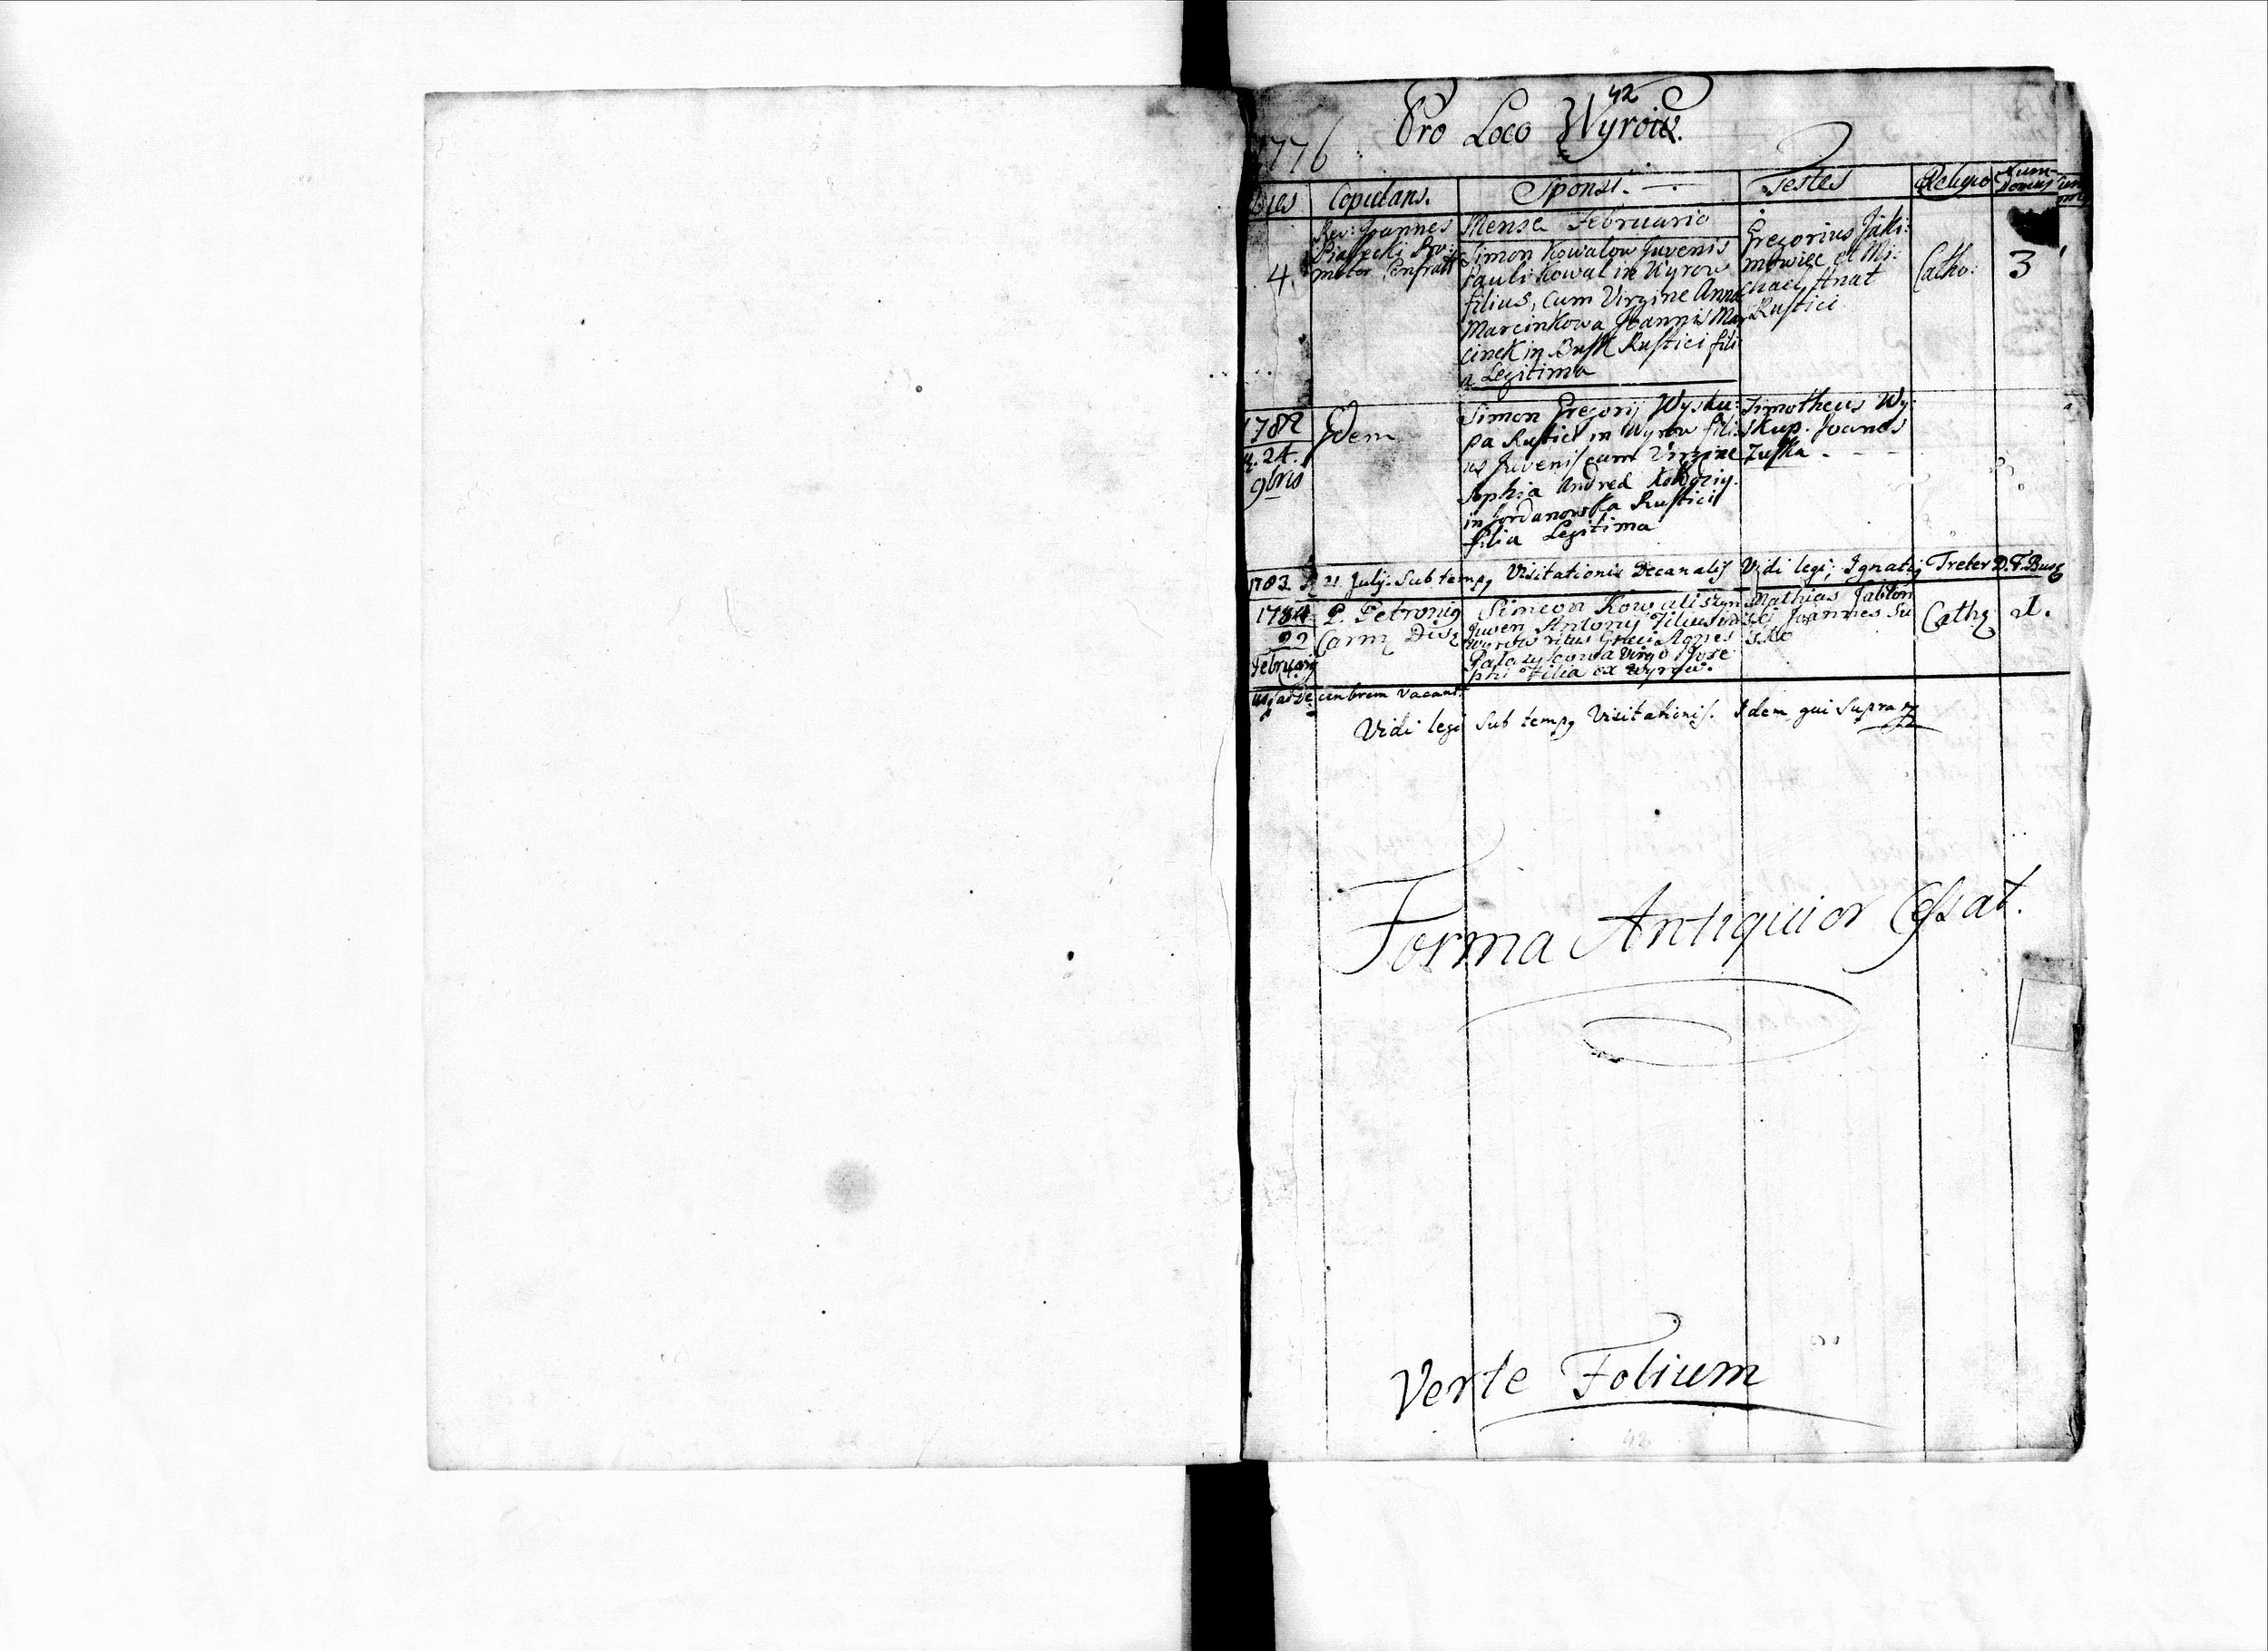 42
Pro Loco Wyrow.
1776
Dies Copulans. Sponsi. Testes Religio Num. Domus
Rev: Joannes
Piasecki Pro:
motor Confrat
4.
Mense Februario
Simon Kowalow Juvenis
Pauli Kowal in Wyrow
filius, Cum Virgine Anna
Marcinkowa Joannis Mar
cinek in Busk Rustici fili
a Legitima
Gregorius Jaki:
mowiec et Mi:
chael Hnat
Rustici
Catho:
3
1782
24.
9bris
Idem
Simon Gregorij Wysku:
pa Rustici in Wyrow fili:
us Juvenis cum Virgine
Sophia Andreæ
in Jordanowka Rustici
filia Legitima
Timotheus Wy:
skup. Joanes
Zuska - - -
1783 21 Julij. Sub temp9 Visitationis Decanalis Vidi legi; Ignati9 Treter D.F. Bus
1784
22
Februarij
P. Petroni9
Carm Disc
Simeon Kowaliszyn
Juven Antony Filius in
Wyrow ritus Græci Agnes
virgo Jose
phi Filia ex Wyrow.
Mathias Jablon
ski Joannes Su
ski
Cath
1.
usq ad De cembrem vacant.
Vidi legi Sub temp9 Visitationis. Idem qui Supra
Forma Antiquior Cessat.
Verte Folium
42